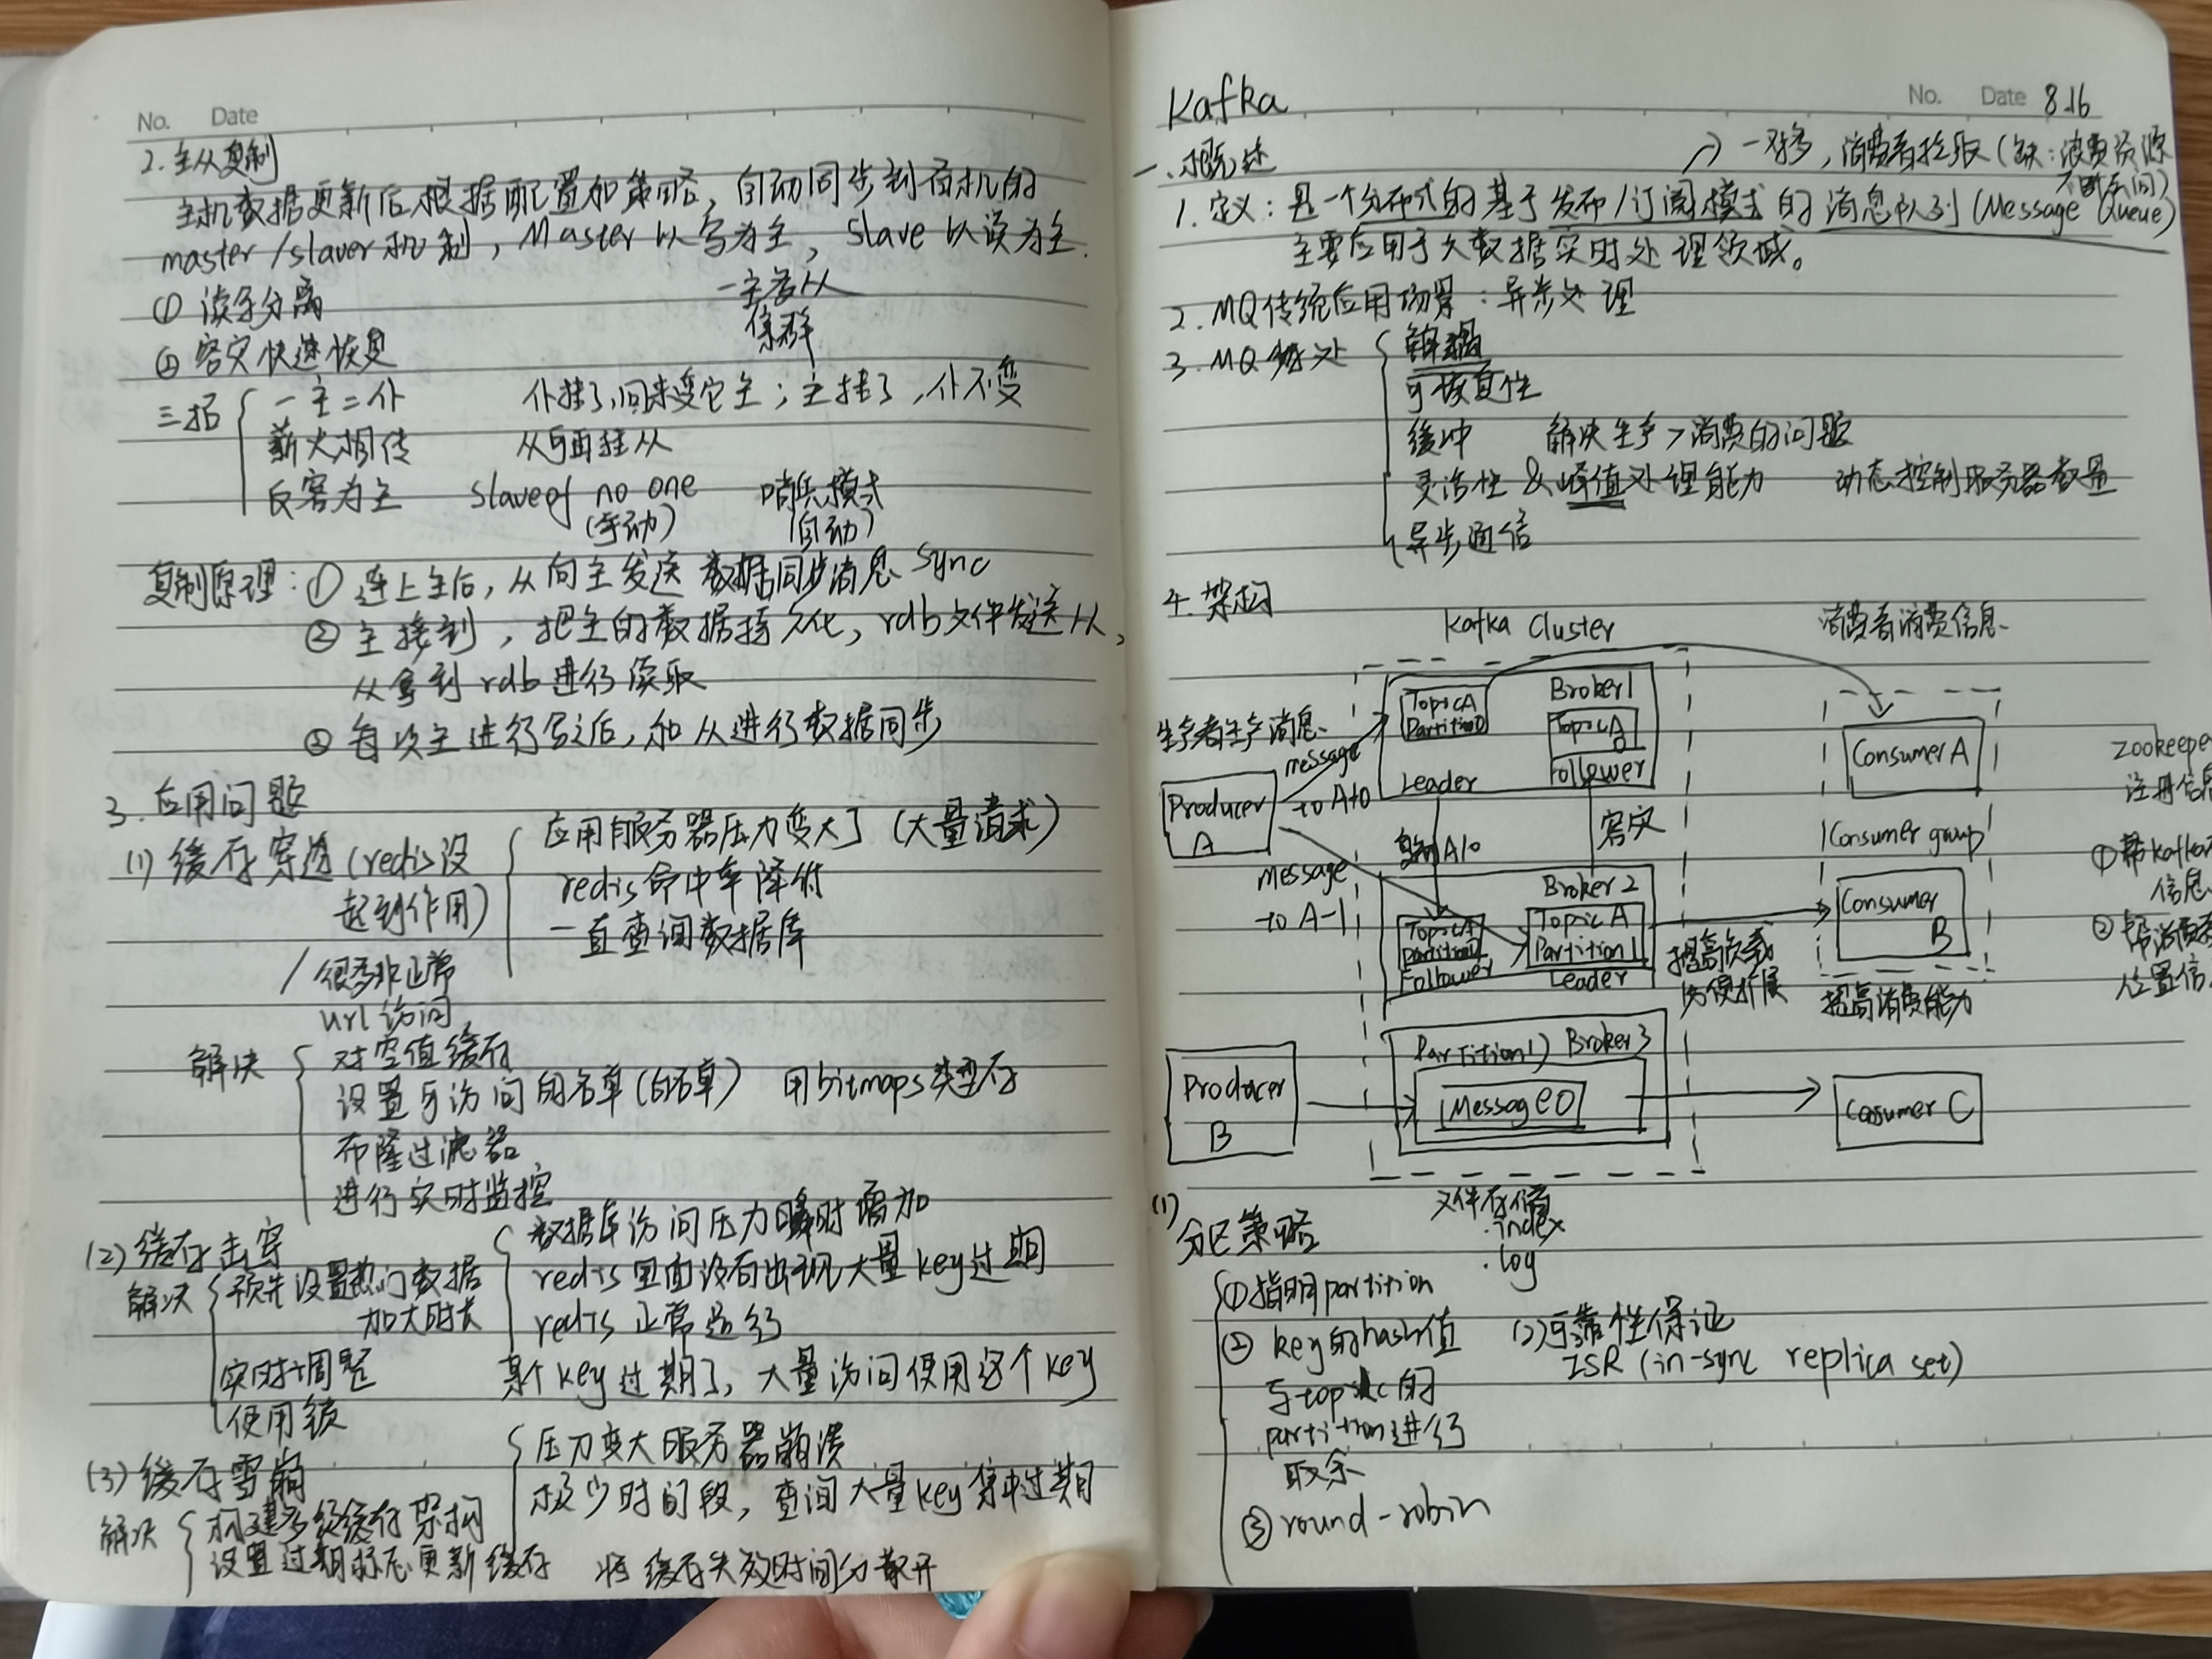 No. Date
2. 主从复制
主机数据更新后根据配置和策略，自动同步到备机的
master/slaver机制，Master以写为主，Slave以读为主.
① 读写分离
一主多从
② 容灾快速恢复
集群
三招
一主二仆 仆挂了,回来变它主；主挂了，仆不变
薪火相传 从与再挂从
反客为主 slaveof no one 哨兵模式
(手动) (自动)
复制原理：① 连上主后，从向主发送 数据同步消息 Sync
② 主接到，把主的数据持久化，rdb文件发送从，
从拿到rdb进行读取
③ 每次主进行写之后，和从进行数据同步
3. 应用问题
(1) 缓存穿透(redis没
起到作用)
应用服务器压力变大了 (大量请求)
redis命中率降低
一直查询数据库
很多非正常
url访问
解决
对空值缓存
设置可访问的名单(白名单) 用bitmaps类型存
布隆过滤器
进行实时监控
(2) 缓存击穿
数据库访问压力瞬时增加
redis里面没有出现大量key过期
redis正常运行
某个key过期了，大量访问使用这个key
解决
预先设置热门数据
加大时长
实时调整
使用锁
(3) 缓存雪崩
压力变大服务器崩溃
极少时间段，查询大量key集中过期
解决
构建多级缓存架构
设置过期标志更新缓存 将缓存失效时间分散开
Kafka
No. Date 8.16
一、概述
一对多，消费者拉取(缺：浪费资源
1. 定义：是一个分布式的基于发布/订阅模式的消息队列(Message Queue)
主要应用于大数据实时处理领域。
2. MQ传统应用场景：异步处理
3. MQ好处
解耦
可恢复性
缓冲 解决生产>消费的问题
灵活性&峰值处理能力 动态控制服务器数量
异步通信
4. 架构
Kafka Cluster
消费者消费信息
生产者生产消息
Producer
A
message
to A-0
message
to A-1
TopicA
Partition0
Leader
Broker1
TopicA
Follower
复制A/0
容灾
Broker2
TopicA
Partition0
Follower
TopicA
Partition1
Leader
提高负载
方便扩展
Consumer A
Consumer group
Consumer
B
提高消费能力
zookeeper
注册信息
① 帮kafka
信息
② 帮消费者
位置信
Producer
B
Partition1) Broker3
Message0
Consumer C
文件存储
.index
.log
(1) 分区策略
① 指明partition
② key的hash值
与topic的
partition进行
取余
③ round-robin
(2) 可靠性保证
ISR (in-sync replica set)